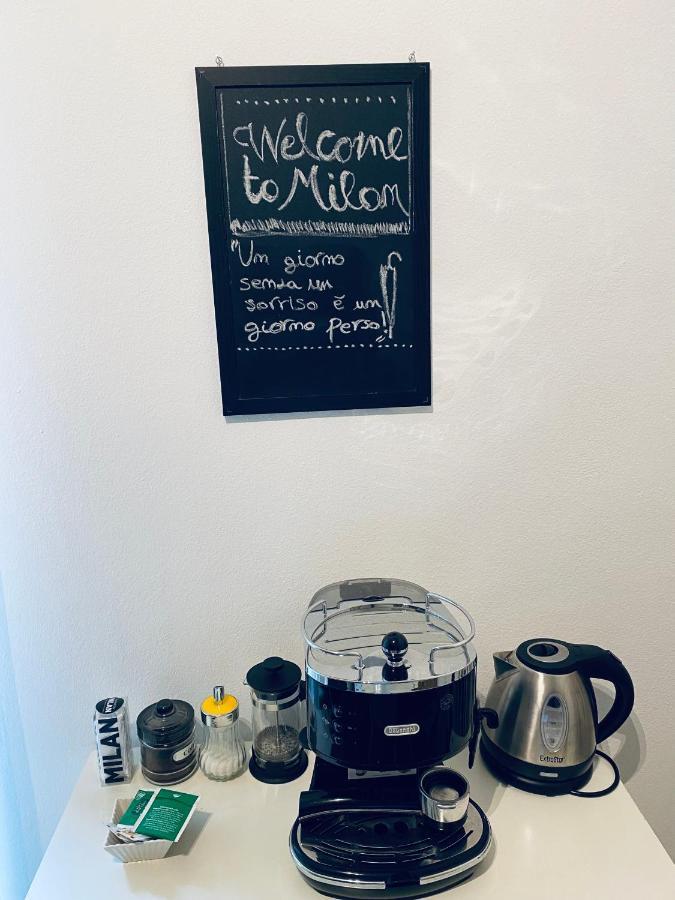 Welcome
to Milan
"Un giorno
senza un
sorriso è un
giorno perso!"
MILAN
DeLonghi
ExtraStar